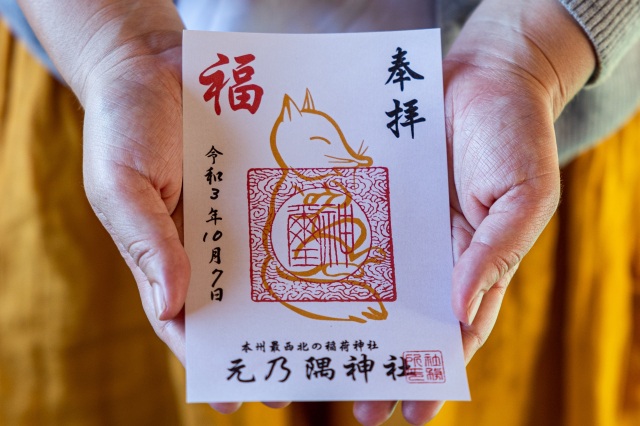 奉拝
福
令和3年10月7日
本州最西北の稲荷神社
元乃隅神社